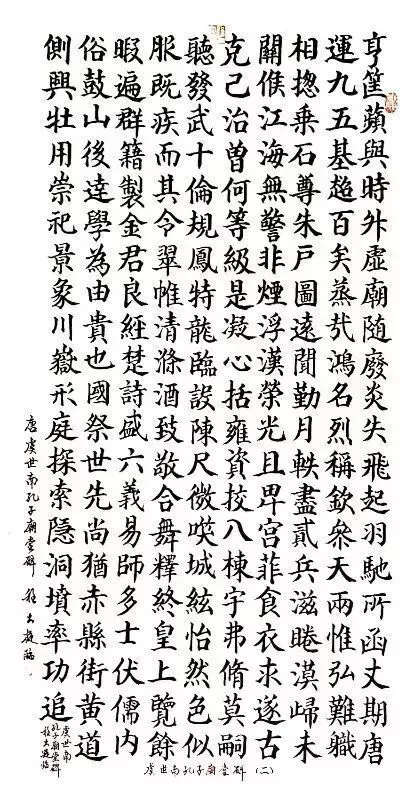 亨筐蘋與時外虛廟随廢炎失飛起羽馳所函丈期唐
運九五基超百矣蒸哉鴻名烈稱欽叅天兩惟弘難職
相揔乗石尊朱戶圖遠聞勤月軼盡貳兵滋睠漠歸未
關候江海無警非煙浮漢榮光且卑宮菲食衣求遂古
克己治曾何等級是凝心括雍資挍八棟宇弗脩莫嗣
聽發武十倫規鳳特龍臨設陳尺微噗城絃怡然色似
服既疾而其令翠帷清滌酒致敬合舞釋終皇上覽餘
暇遍群籍製金君良經楚詩盛六義易師多士伏儒内
俗鼓山後達學為由貴也國祭世先尚猶赤縣街黄道
側興壮用崇祀景象川嶽形庭探索隐洞墳率功追
唐虞世南孔子廟堂碑 臨
虞世南
孔子廟堂碑
臨
虞世南孔子廟堂碑（二）